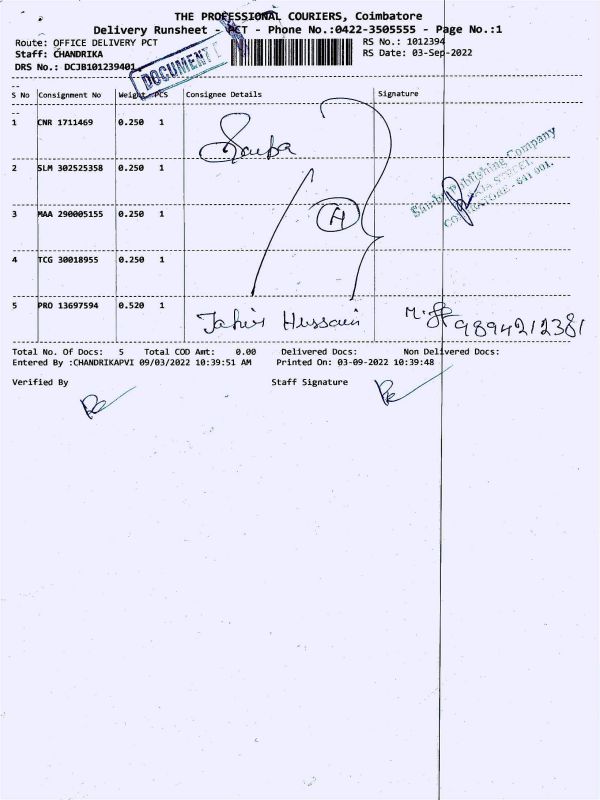 THE PROFESSIONAL COURIERS, Coimbatore
Delivery Runsheet - PCT - Phone No.:0422-3505555 - Page No.:1
Route: OFFICE DELIVERY PCT
RS No.: 1012394
Staff: CHANDRIKA
RS Date: 03-Sep-2022
DRS No.: DCJB101239401
DOCUMENT
S No Consignment No Weight PCS Consignee Details Signature
1 CNR 1711469 0.250 1
2 SLM 302525358 0.250 1
Publishing Company
COIMBATORE - 641 001.
3 MAA 290005155 0.250 1
4 TCG 30018955 0.250 1
5 PRO 13697594 0.520 1
Hussain 9894212381
Total No. Of Docs: 5 Total COD Amt: 0.00 Delivered Docs: Non Delivered Docs:
Entered By :CHANDRIKAPVI 09/03/2022 10:39:51 AM Printed On: 03-09-2022 10:39:48
Verified By Staff Signature